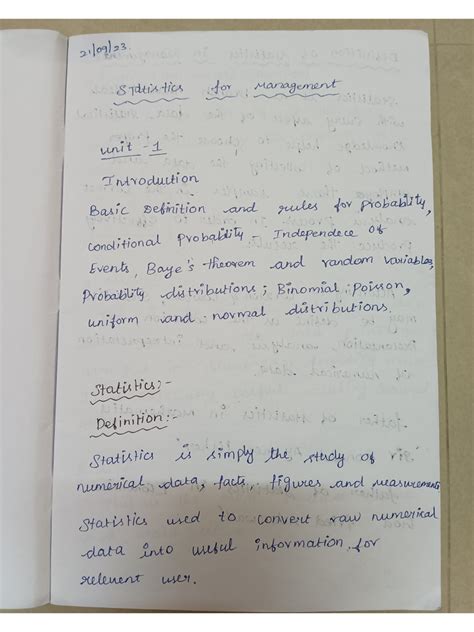 21/09/23.
Statistics for Management
unit - 1
Introduction
Basic Definition and rules for probability,
conditional Probability - Independece of
Events, Baye's theorem and random variables,
Probability distributions; Binomial, Poisson,
uniform and normal distributions.
Statistics:-
Definition:-
Statistics is simply the study of
numerical data, facts, figures and measurements
Statistics used to convert raw numerical
data into useful information, for
relevent user.